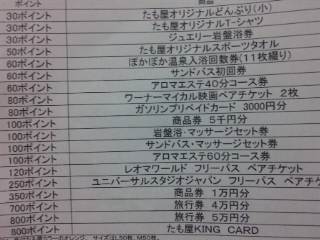 ポイント 商品
30ポイント たも屋オリジナルどんぶり(小)
30ポイント たも屋オリジナルT-シャツ
30ポイント ジュエリー岩盤浴券
50ポイント たも屋オリジナルスポーツタオル
60ポイント ぽかぽか温泉入浴回数券(11枚綴り)
60ポイント サンドバス初回券
60ポイント アロマエステ40分コース券
80ポイント ワーナーマイカル映画ペアチケット 2枚
80ポイント ガソリンプリペイドカード 3000円分
100ポイント 商品券 5千円分
100ポイント 岩盤浴・マッサージセット券
100ポイント サンドバス・マッサージセット券
100ポイント アロマエステ60分コース券
120ポイント レオマワールド フリーパス ペアチケット
250ポイント ユニバーサルスタジオジャパン フリーパス ペアチケ
350ポイント 商品券 1万円分
700ポイント 旅行券 4万円分
800ポイント 旅行券 5万円分
800ポイント たも屋KING CARD